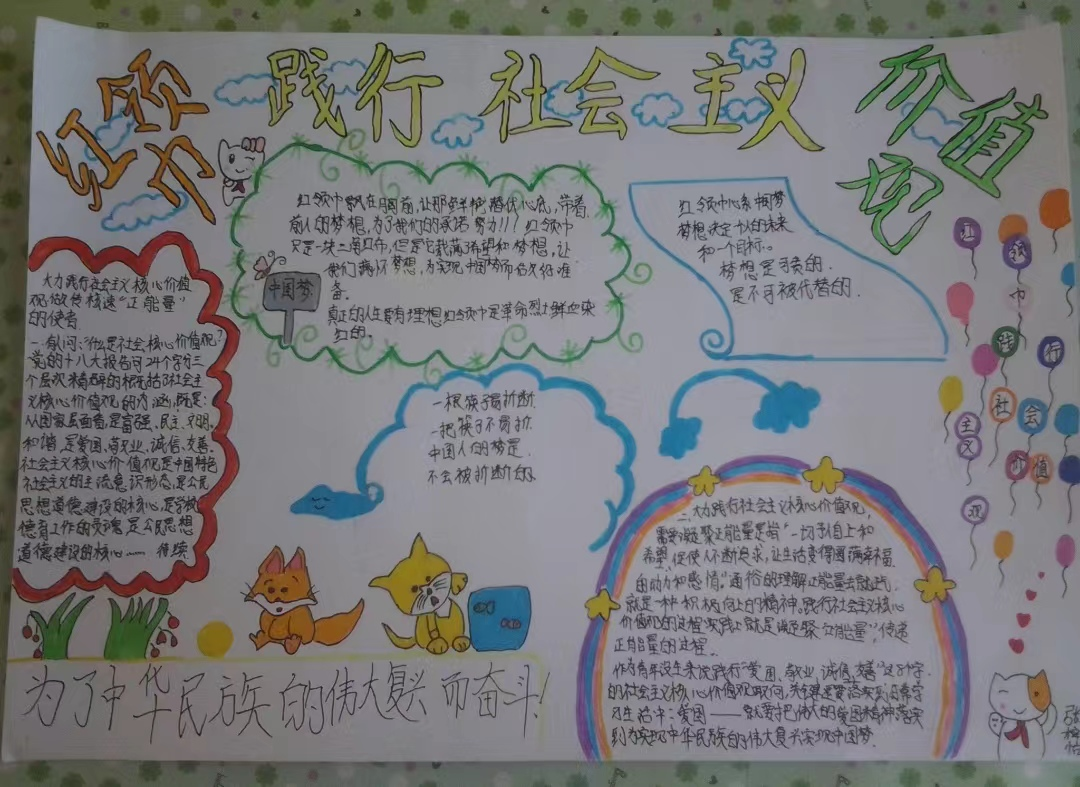 红领巾
践行 社会主义
价值观
红领巾飘在胸前,让那色彩
心底,带着
前人的梦想,为了我们的承诺努力!!! 红领巾
只是一块三角红巾,但是它载满希望和梦想,让
我们满怀梦想,为实现中国梦而
备。
真正的人生要有理想红领巾是革命烈士鲜血染
红的。
中国梦
红领巾心系中国梦
梦想决定少年的未来
和一个目标。
梦想是
是不可被代替的。
大力践行社会主义核心价值
观做传播速“正能量”
的使者
一.有人问:什么是社会核心价值观?
党的十八大报告可24个字分三
个层次精辟的概括了社会主
义核心价值观的内涵,既是:
从国家层面看,是富强、民主、文明、
和谐,是爱国、敬业、诚信、友善。
社会主义核心价值观是中国特色
社会主义的主流意识形态,是公民
思想道德建设的核心,是学校
德育工作的灵魂,是公民思想
道德建设的核心……
一根筷子易折断.
一把筷子不易折.
中国人的梦是.
不会被折断的.
红
领
巾
践
行
社
会
主
义
价
值
观
二.大力践行社会主义核心价值观,
需要凝聚正能量是指“一切予自上和
希望,促使人不断追求,让生活变得圆满幸福
的动力和感情。”通俗的理解正能量
就是一种积极向上的精神。践行社会主义核心
价值观的过程实践上就是凝聚“正能量”,传递
正能量的过程.
作为青年没生来说践行“爱国、敬业、诚信、友善”这8个字
的社会主义核心价值观取向,
习生活中:爱国——就要把伟大的爱国精神落实
到为实现中华民族的伟大复兴实现中国梦.
为了中华民族的伟大复兴而奋斗!